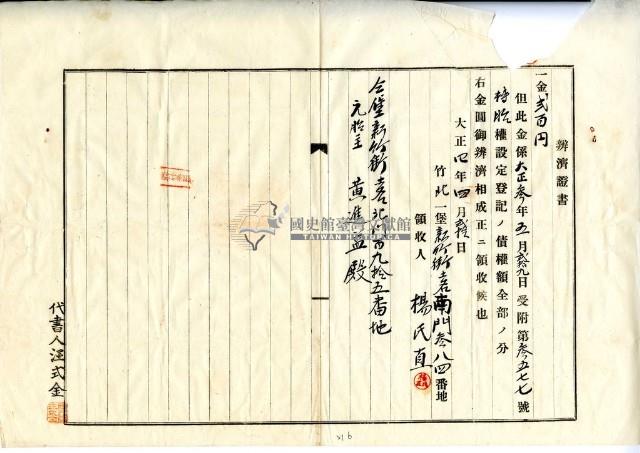 辨濟證書
一金貳百円
但此金係大正參年五月貳拾九日受附第參五七七號
持胎權設定登記ノ債權額全部ノ分
右金圓御辨濟相成正ニ領收候也
大正四年四月 日
竹北一堡新竹街土名南門參八四番地
領收人 楊氏直
仝堡新竹街土名北門百九拾五番地
元胎主 黃 殿
代書人汪式金
國史館臺灣文獻館
TAIWAN HISTORICA